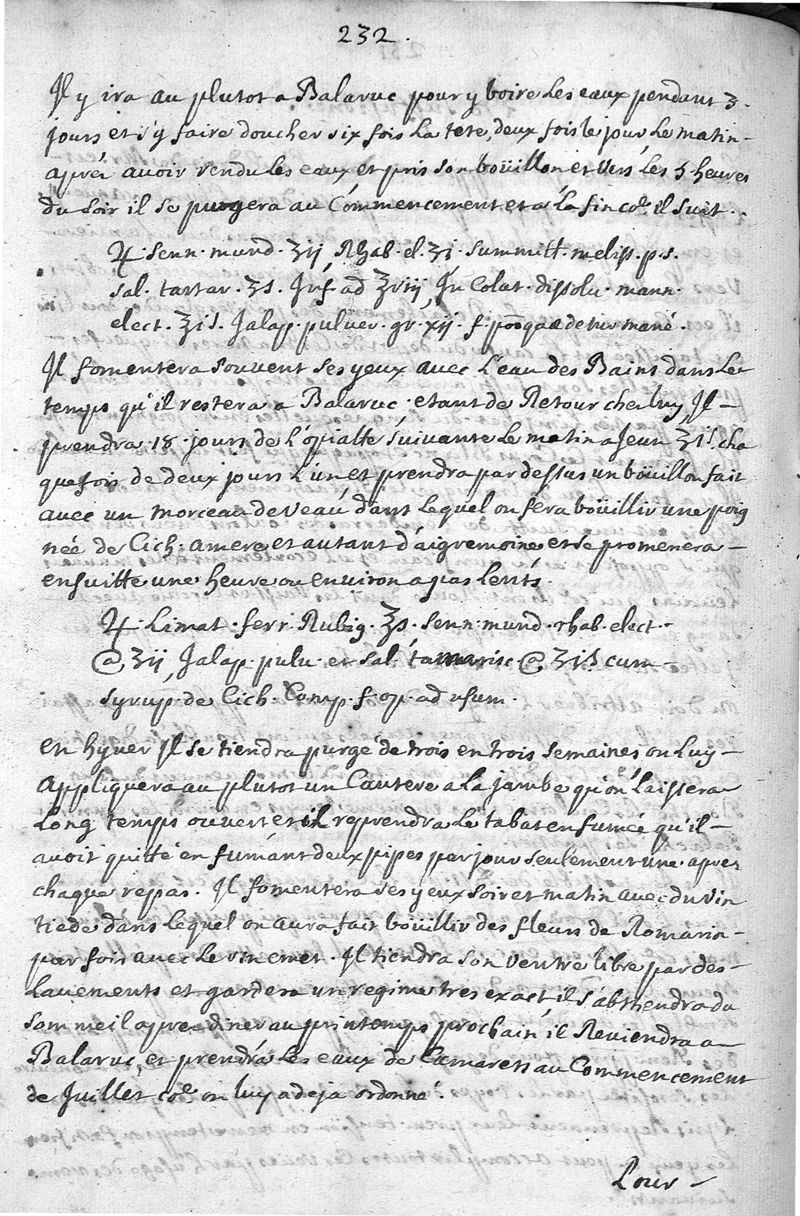 232.
Il y ira au plutot a Balaruc pour y boire les eaux pendant 3.
jours et s'y faire doucher six fois la tete, deux fois le jour, le matin
aprés avoir rendu les eaux et pris son boüillon et vers les 5 heures
du soir il se purgera au Commencement et a la fin coē. il suit.
♃. Senn. mund. ʒij, Rhab. el. ʒi. summitt. meliss. p. s.
sal. tartar. ʒs. Inf. ad ℥viij, In Colat. dissolu. mann.
elect. ℥is. Jalap. puluer. gr. xij. f. mané.
Il fomentera souvent ses yeux avec l'eau des Bains dans le
temps qu'il restera a Balaruc. etant de Retour chez luy, Il
prendra 18. jours de l'opiatte suivante le matin a Jeun ʒis. cha
que fois de deux jours l'un et prendra par dessus un boüillon fait
avec un morceau de veau dans lequel on fera boüillir une poig
née de Cich. amere et autant d'aigremoine et se promenera
ensuitte une heure ou environ a pas lents.
♃. Limat. ferr. Rubig. ℥s. senn. mund. rhab. elect.
@ ʒij, Jalap. pulu. et sal. tamarisc @ ʒis cum
syrup. de Cich. Comp. f. op. ad usum.
en hyver Il se tiendra purgé de trois en trois semaines on Luy
appliquera au plutot un Cautere a la jambe qu'on laissera
Long temps ouvert et il reprendra le tabat en fumée qu'il
avoit quitté en fumant deux pipes par jour seulement une apres
chaque repas. Il fomentera ses yeux soir et matin avec du vin
tiede dans lequel on aura fait boüillir des fleurs de Romarin
par fois avec le vin emet. Il tiendra son ventre libre par des
Lauements et gardera un regime tres exact, il s'abtiendra du
sommeil apres diner au printemps prochain, il Reviendra a
Balaruc, et prendra les eaux de Camarets au Commencement
de Juillet coē. on luy a deja ordonné.
Pour